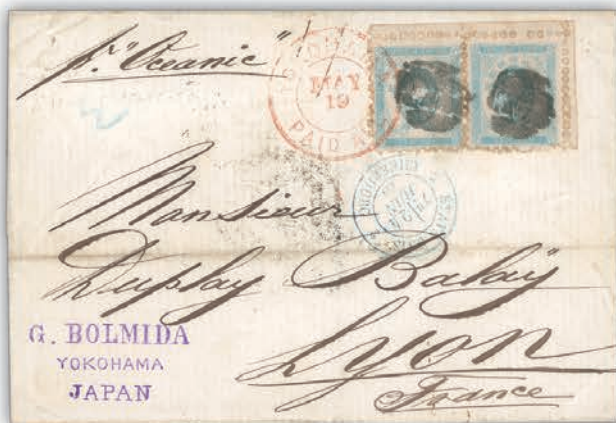 pr "Oceanic"
YOKOHAMA
MAY
19
PAID ALL
Monsieur
Duplay Balaÿ
Lyon
France
G. BOLMIDA
YOKOHAMA
JAPAN